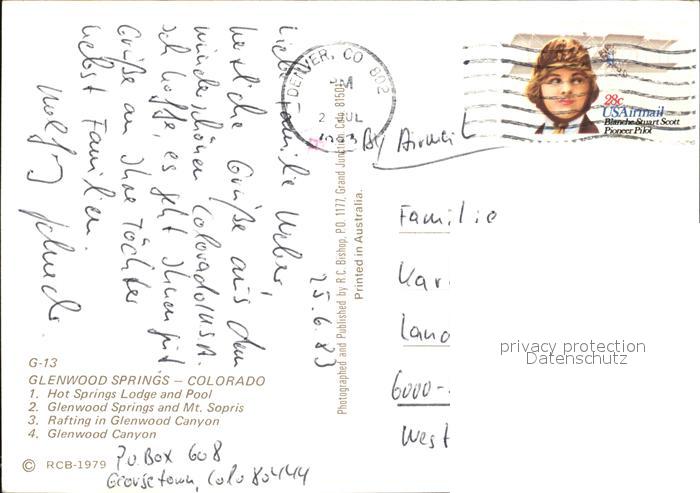 Liebe Familie Weber,
herzliche Grüße aus dem
wunderschönen Colorado/USA.
Ich hoffe es geht Ihnen gut
Grüße an Ihre Töchter
nebst Familien
25.6.83
G-13
GLENWOOD SPRINGS – COLORADO
1. Hot Springs Lodge and Pool
2. Glenwood Springs and Mt. Sopris
3. Rafting in Glenwood Canyon
4. Glenwood Canyon
© RCB-1979
P.O. Box 608
Georgetown, Colo 80444
Photographed and Published by R.C. Bishop, P.O. 1177, Grand Junction, Colo. 81501
Printed in Australia.
DENVER, CO 802
PM
JUL
By Airmail
28c
USAirmail
Blanche Stuart Scott
Pioneer Pilot
Familie
Kar
Land
6000-
West
privacy protection
Datenschutz